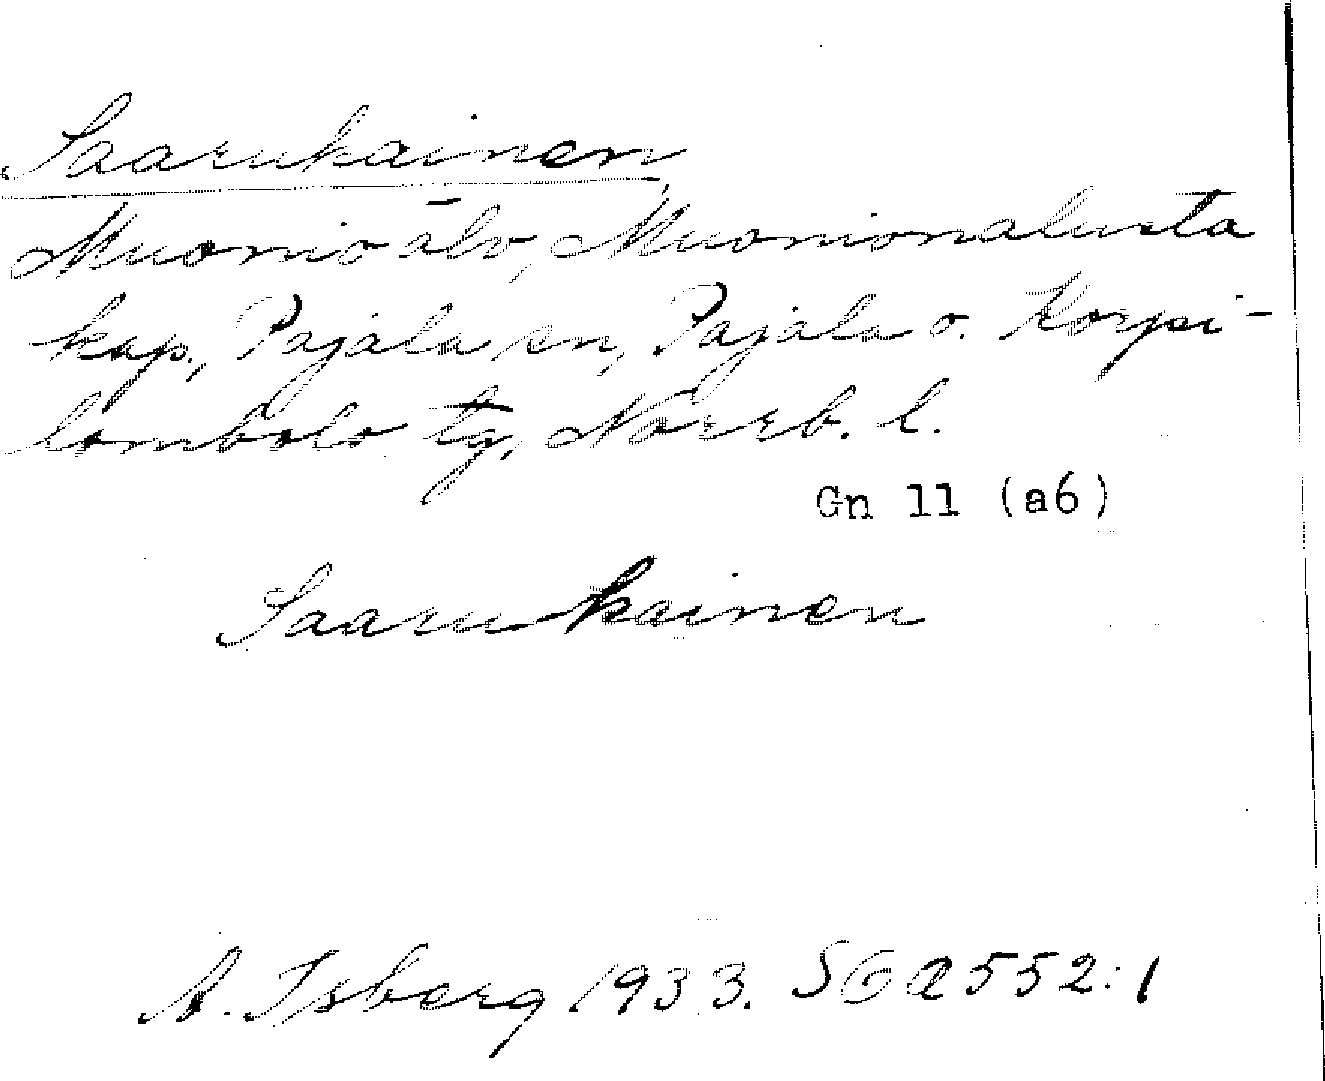 Saarukainen,
Muonio älv, Muonionalusta
kap., Pajala sn, Pajala o. Korpi-
lombolo tg, Norrb. l.
Gn 11 (a6)
Saarukainen
A. Isberg 1933. SGA 552:1